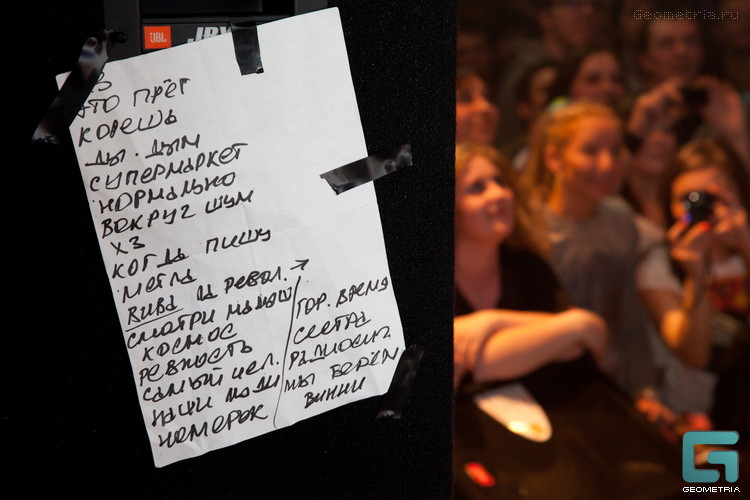 Geometria.ru
JBL
JBL
ХЗ
ЭТО ПРЁТ
КОРЕШЬ
ДЫ. ДЫМ
СУПЕРМАРКЕТ
НОРМАЛЬНО
ВОКРУГ ШУМ
ХЗ
КОГДА ПИШУ
МЕТЛА
ВИВА ЛА РЕВОЛ. →
СМОТРИ МАЛЫШ
КОСМОС
РЕВНОСТЬ
САМЫЙ ЧЕЛ.
НАШИ ЛЮДИ
НОМЕРОК
ГОР. ВРЕМЯ
СЕСТРА
МЫ БЕРЁМ
ВИННИ
GEOMETRIA